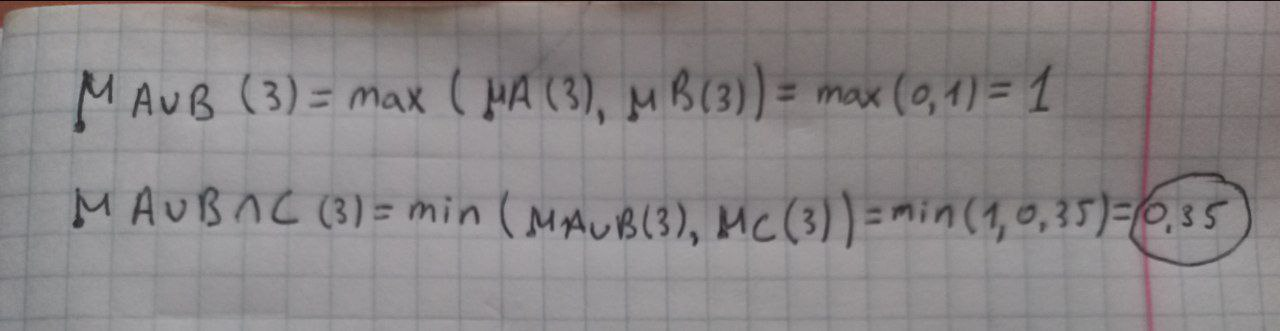 μ A∪B (3) = max ( μA(3), μB(3)) = max(0,1) = 1
μ A∪B∩C (3) = min ( μA∪B(3), μC(3)) = min(1, 0,35) = 0,35